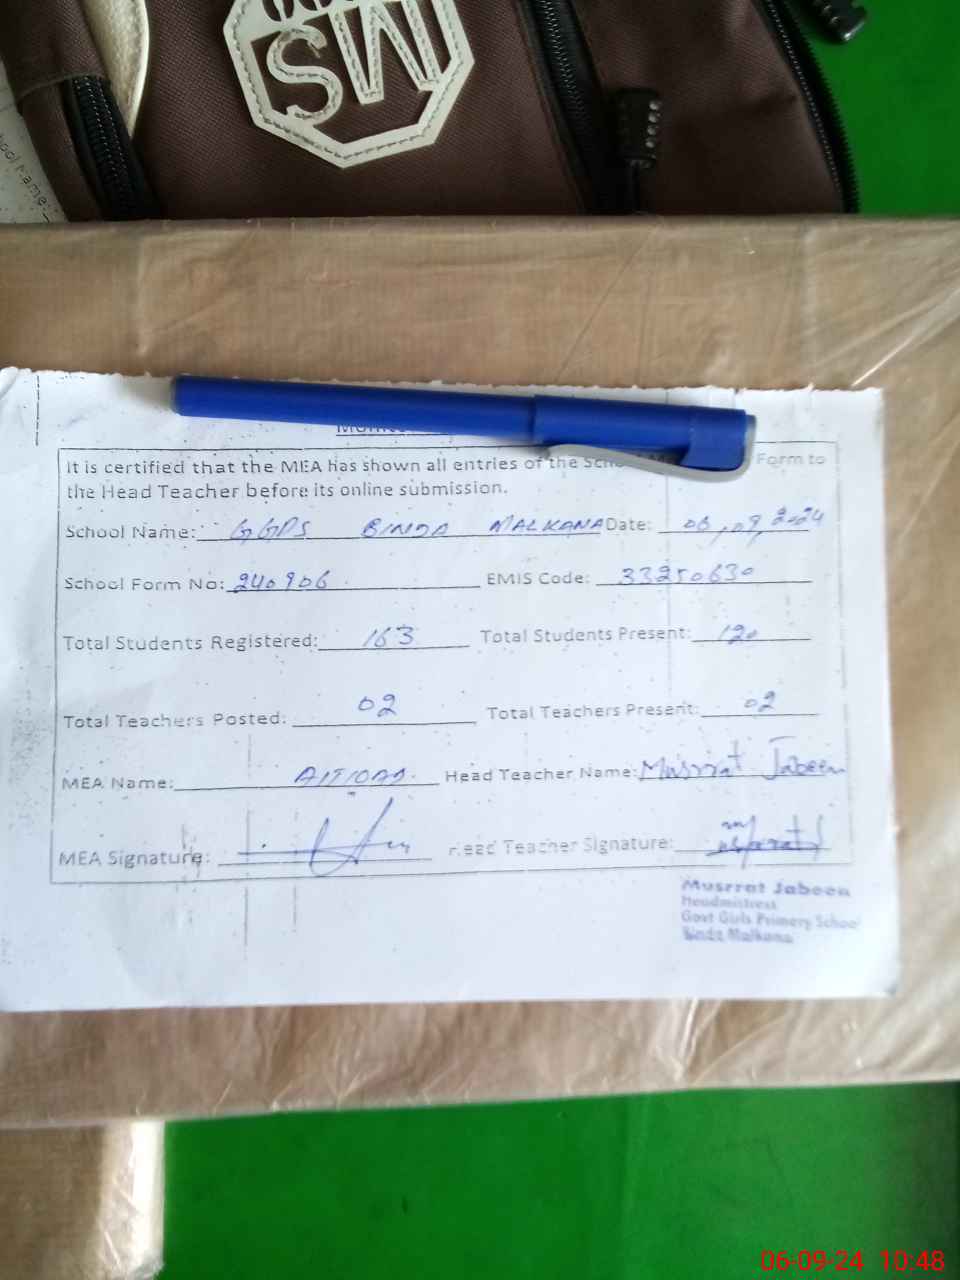 MS
hool Name:
It is certified that the MEA has shown all entries of the Form to
the Head Teacher before its online submission.
School Name: GGPS BINDA MALKANA Date: 06,09,2024
School Form No: 240906 EMIS Code: 33250630
Total Students Registered: 163 Total Students Present: 120
Total Teachers Posted: 02 Total Teachers Present: 02
MEA Name: Head Teacher Name: Musrrat Jabeen
MEA Signature: Head Teacher Signature:
Musrrat Jabeen
Headmistress
Govt Girls Primery School
Binda Malkana
06-09-24 10:48